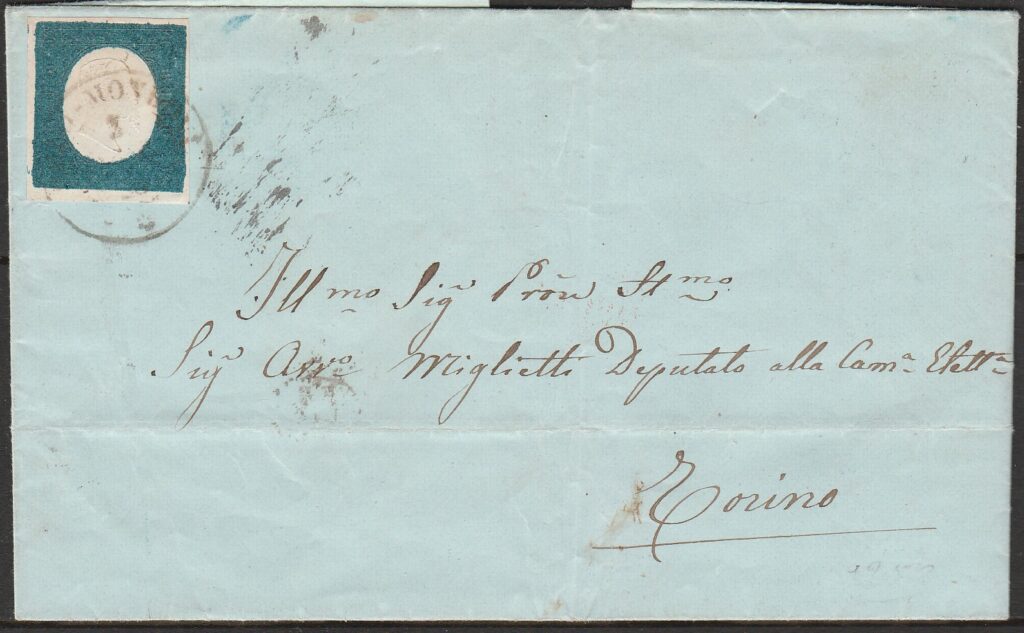 Ill.mo Sig.r Prōn St.mo
Sig.r Avv.o Miglietti Deputato alla Cam.a Elett.a
Torino